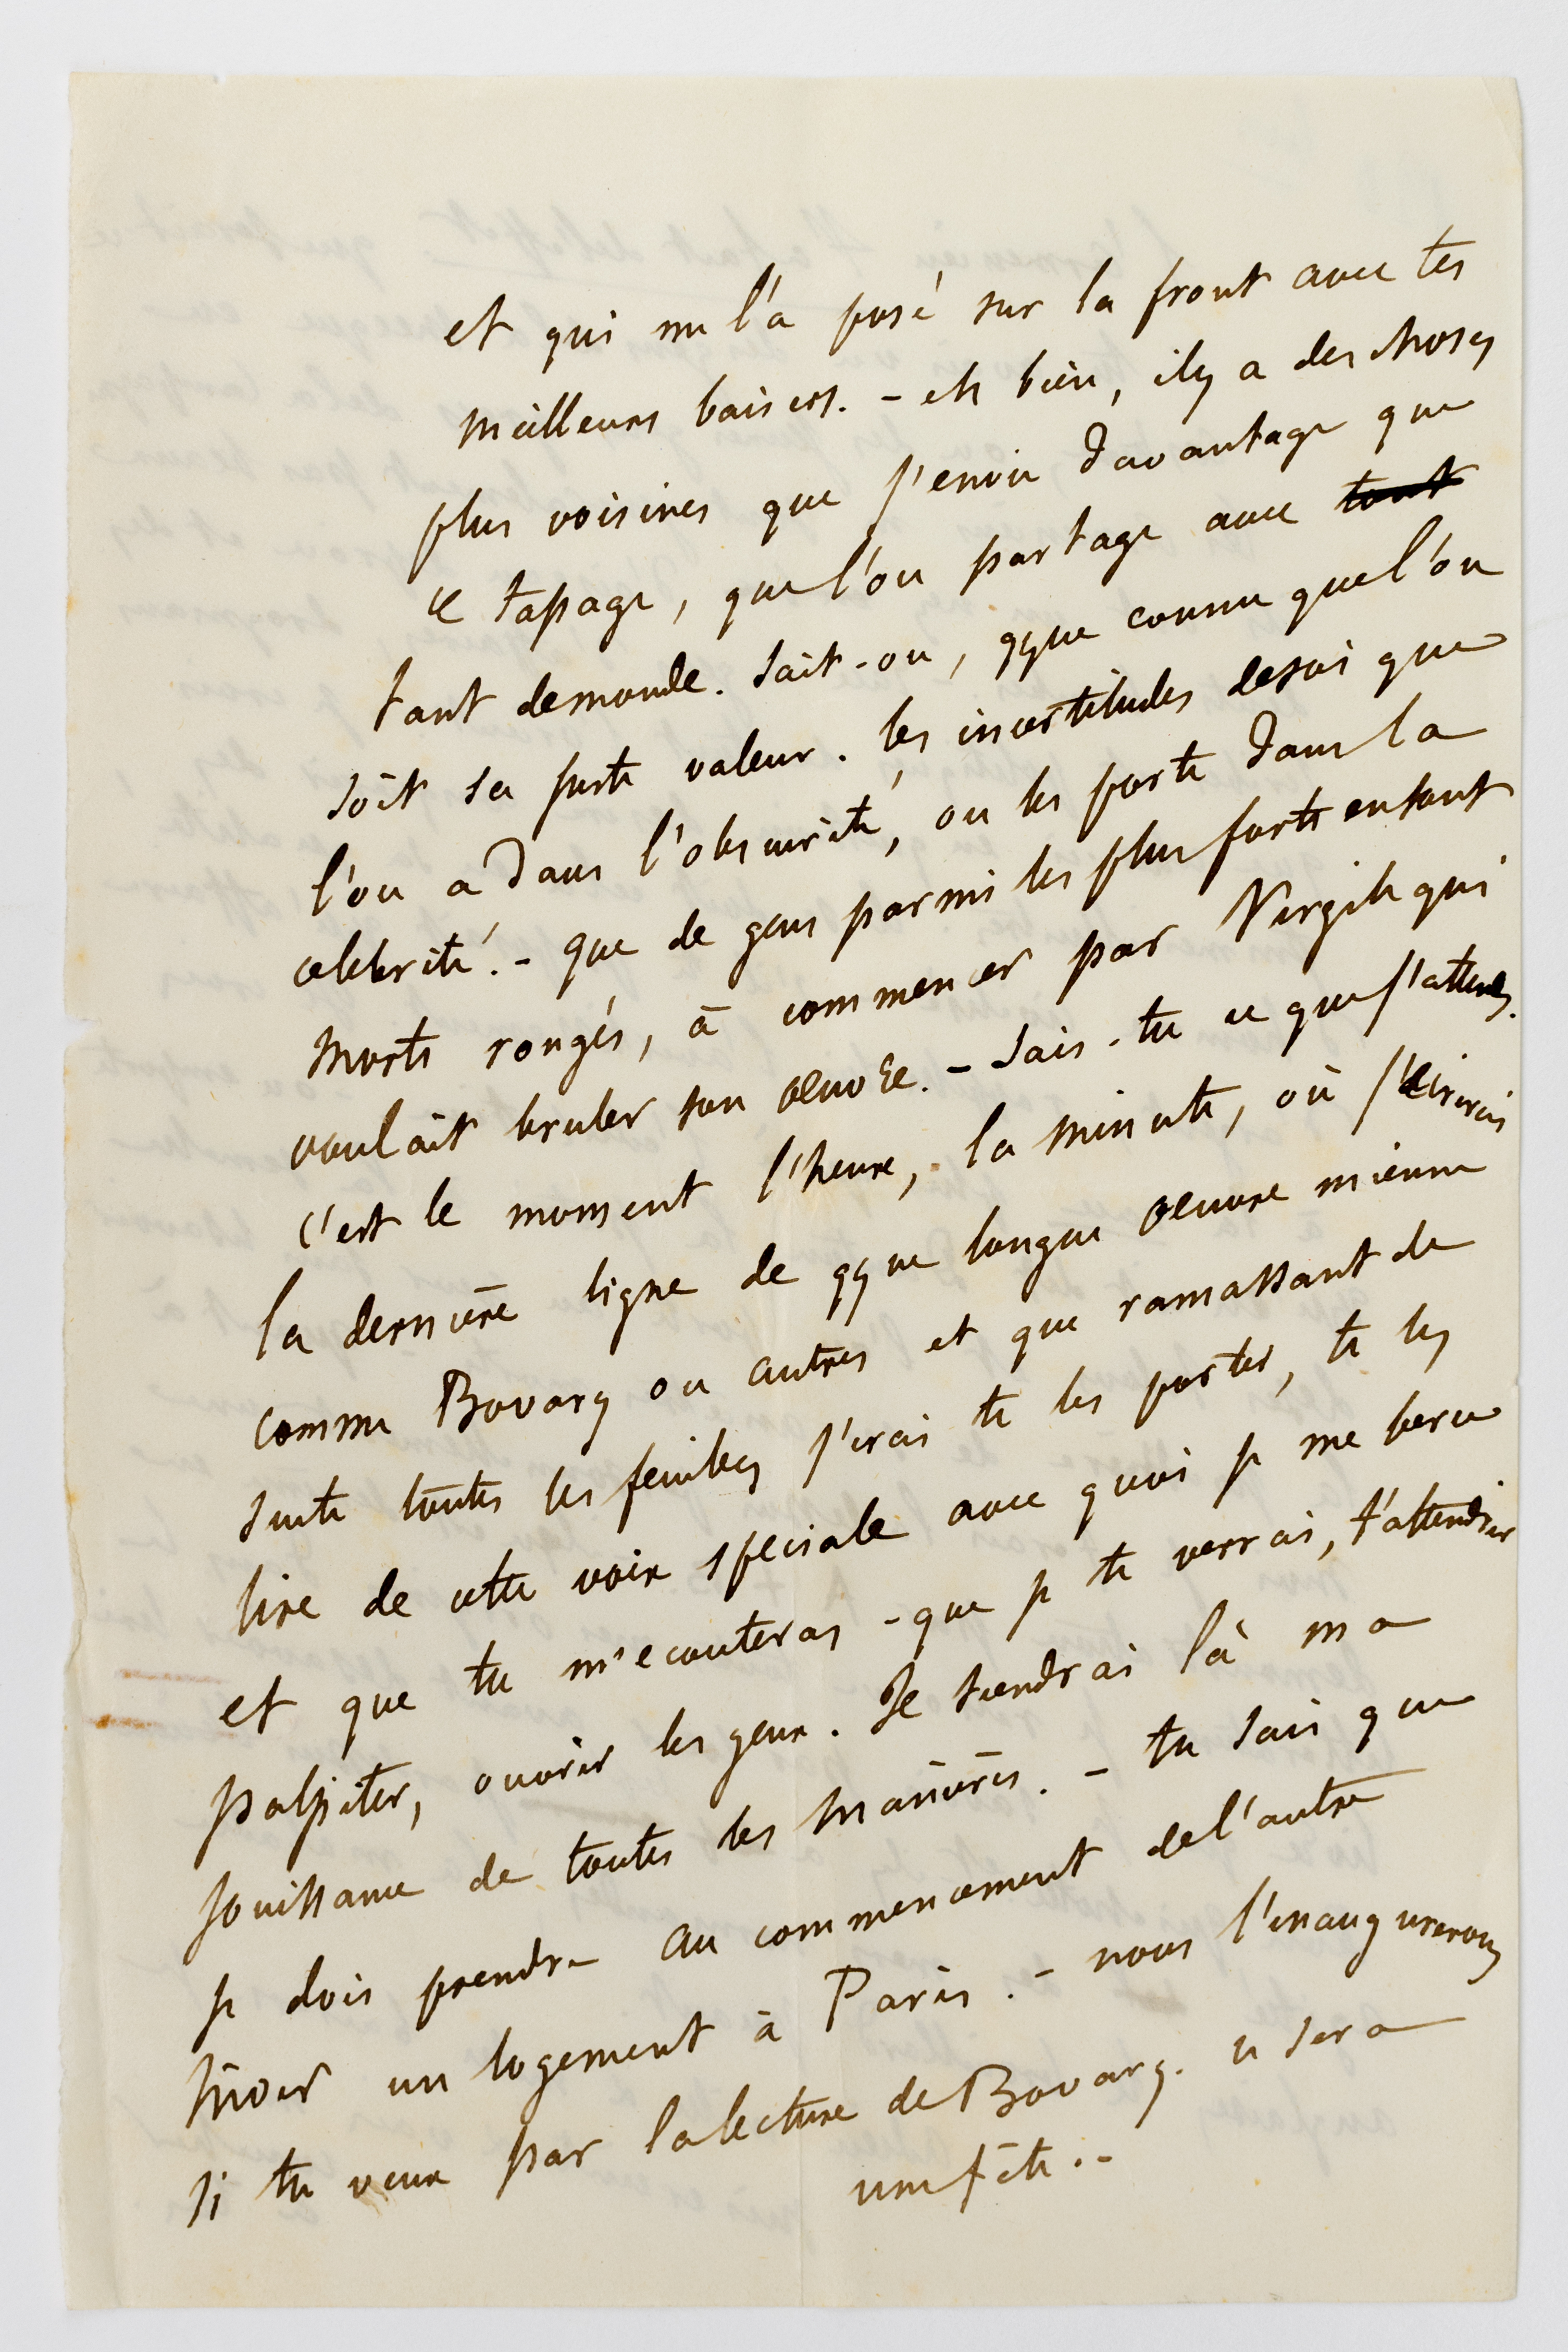 et qui me l'a posé sur la front avec tes
meilleurs baisers. - eh bien, il y a des choses
plus voisines que j'envie davantage que
ce tapage, que l'on partage avec tout
tant de monde. Sait-on, qque connu que l'on
soit sa juste valeur. les incertitudes de soi que
l'on a dans l'obscurité, on les porte dans la
celebrité. - que de gens parmi les plus forts en sont
morts rongés, à commencer par Virgile qui
voulait bruler son œuvre. - Sais-tu ce que j'attends.
c'est le moment l'heure, la minute, où j'écrirais
la dernière ligne de qque longue œuvre mienne
comme Bovary ou autres et que ramassant de
suite toutes les feuilles j'irai te les porter, te les
lire de cette voix speciale avec quoi je me berce
et que tu m'ecouteras - que je te verrai, t'attendrir
palpiter, ouvrir les yeux. Je tiendrai là ma
jouissance de toutes les manières. - tu sais que
je dois prendre au commencement de l'autre
hiver un logement à Paris. - nous l'inaugurerons
si tu veux par la lecture de Bovary. ce sera
une fête. -